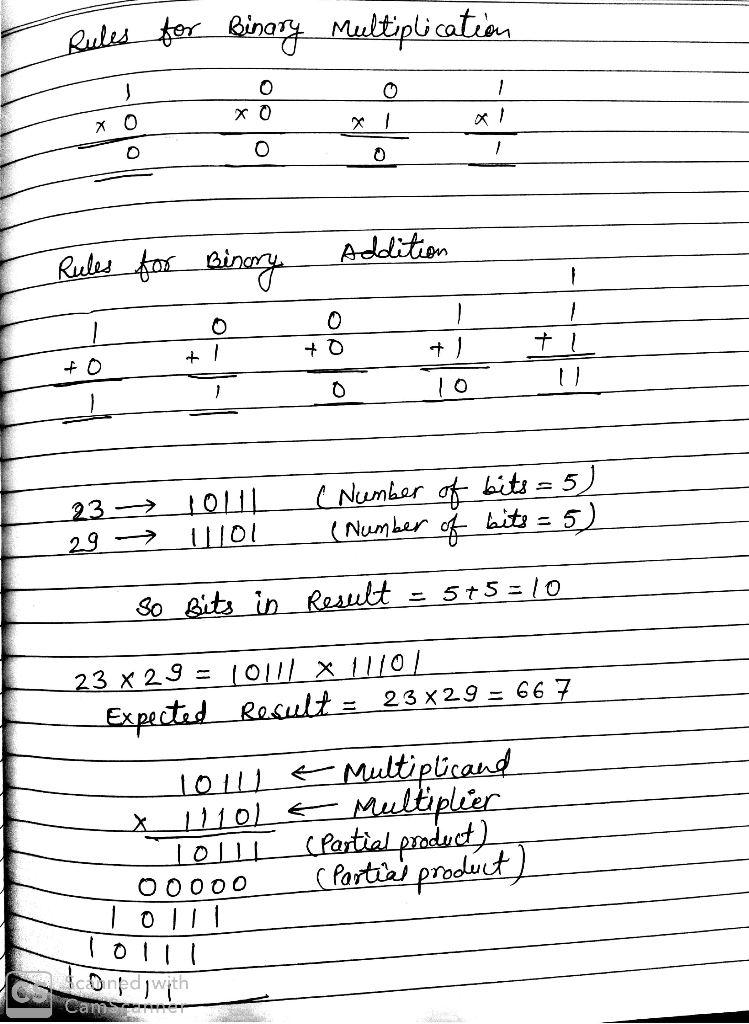 Rules for Binary Multiplication
1 0 0 1
x 0 x 0 x 1 x 1
0 0 0 1
Rules for Binary Addition
1
1 0 0 1 1
+ 0 + 1 + 0 + 1 + 1
1 1 0 10 11
23 → 10111 (Number of bits = 5)
29 → 11101 (Number of bits = 5)
So Bits in Result = 5+5=10
23 x 29 = 10111 x 11101
Expected Result = 23x29 = 667
10111 ← Multiplicand
x 11101 ← Multiplier
10111 (Partial product)
00000 (Partial product)
10111
10111
10111
CS Scanned with
CamScanner